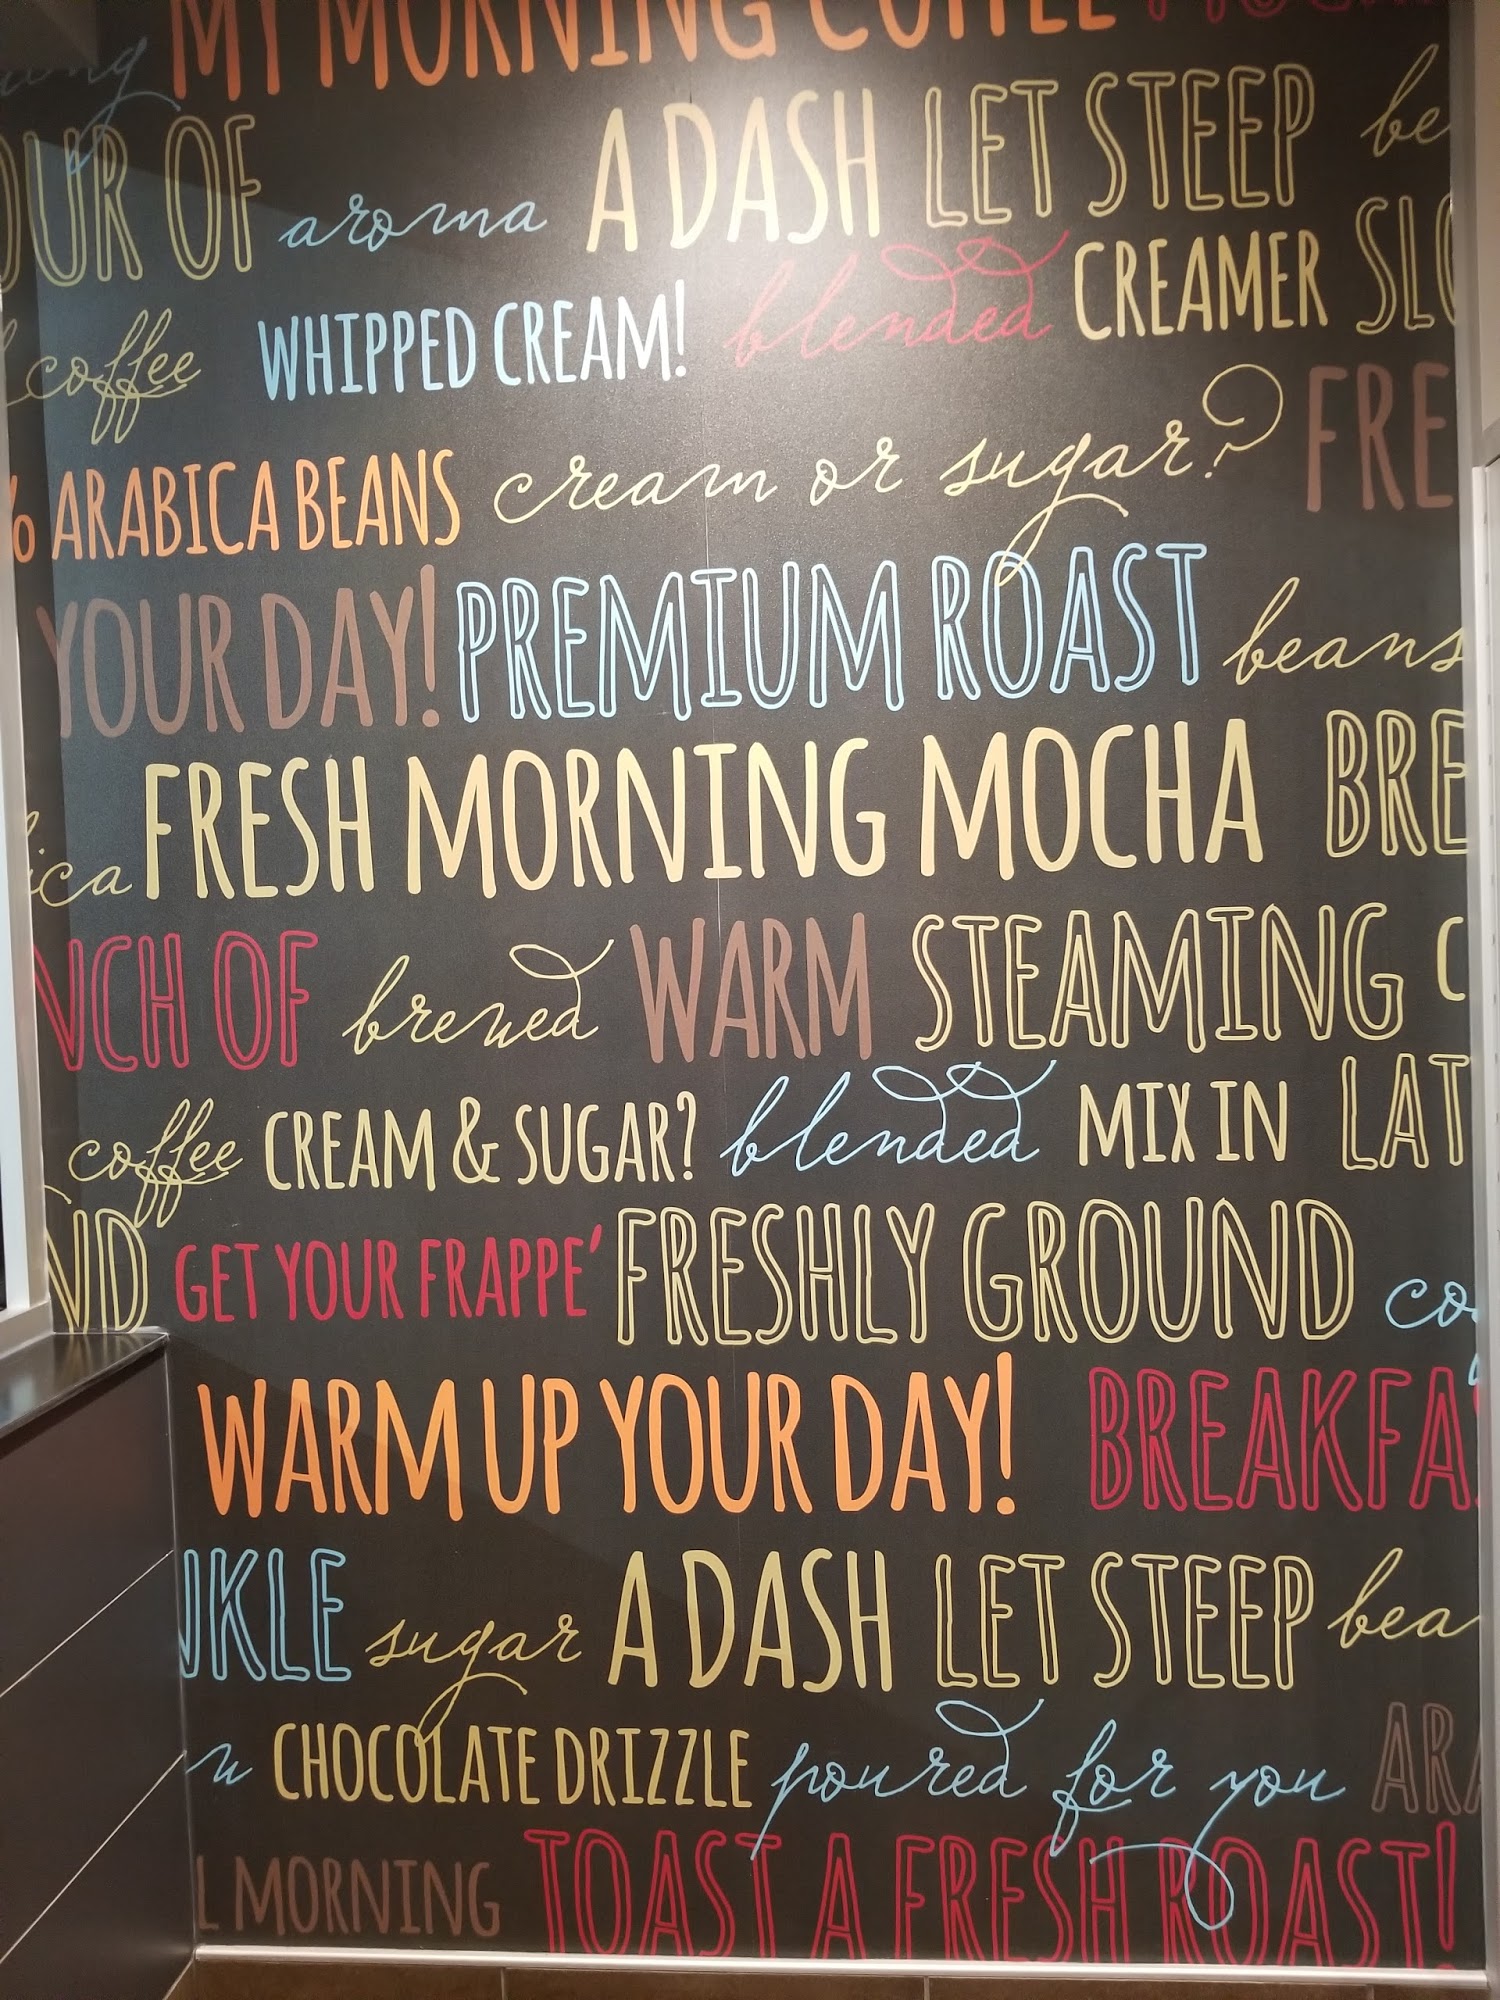 MY MORNING COFFEE
OUR OF aroma A DASH LET STEEP be
coffee WHIPPED CREAM! blended CREAMER SLO
% ARABICA BEANS cream or sugar? FRE
YOUR DAY! PREMIUM ROAST beans
ica FRESH MORNING MOCHA BRE
NCH OF brewed WARM STEAMING C
coffee CREAM & SUGAR? blended MIX IN LAT
ND GET YOUR FRAPPE' FRESHLY GROUND co
WARM UP YOUR DAY! BREAKFAS
NKLE sugar A DASH LET STEEP bea
u CHOCOLATE DRIZZLE poured for you ARA
L MORNING TOAST A FRESH ROAST!